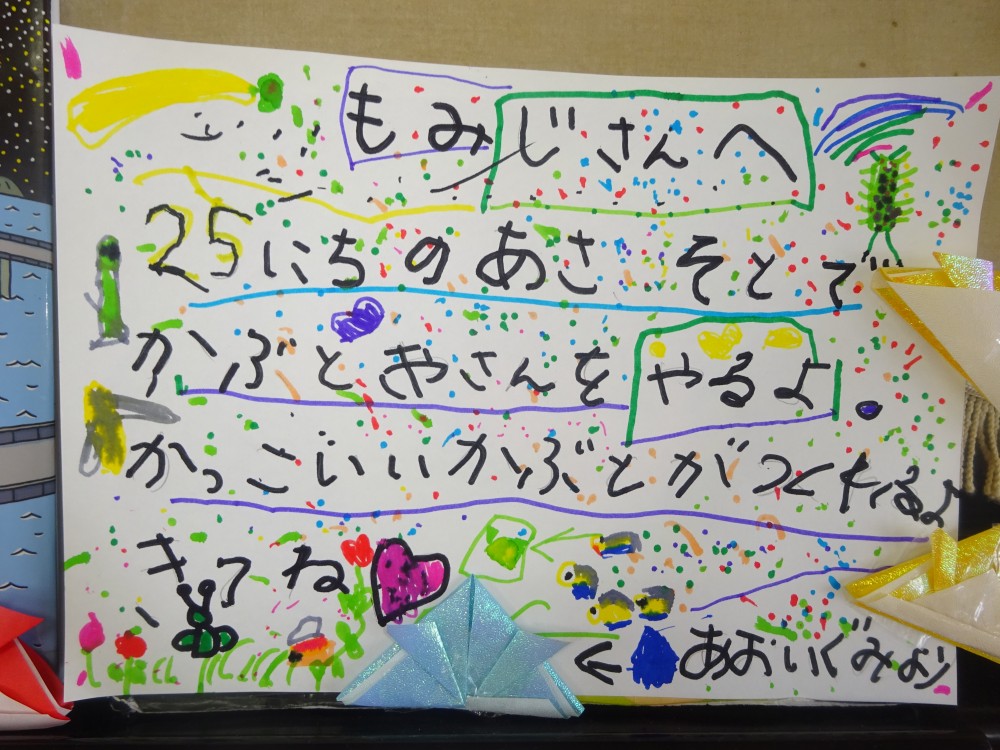 もみじさんへ
25にちのあさ そとで
かぶとおさんを やるよ。
かっこいい かぶとがつくれるよ
きてね
あおいぐみより